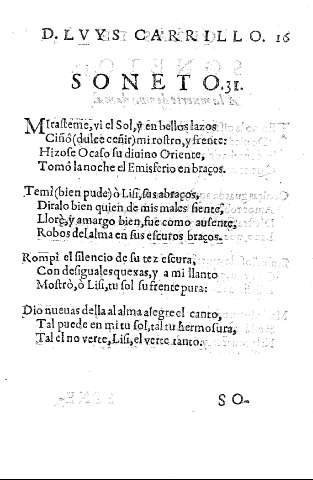 D. LVYS CARRILLO. 16
SONETO. 31.
MIrasteme, vi el Sol, y en bellos lazos
Ciñó (dulce ceñir) mi rostro, y frente:
Hizose Ocaso su diuino Oriente,
Tomò la noche el Emisferio en braços.
Temì (bien pude) ò Lisi, sus abraços,
Diralo bien quien de mis males siente,
Llorè, y amargo bien, fue como ausente,
Robos del alma en sus escuros braços.
Rompi el silencio de su tez escura,
Con desiguales quexas, y a mi llanto
Mostrò, ò Lisi, tu sol su frente pura:
Dio nueuas della al alma alegre el canto,
Tal puede en mi tu sol, tal tu hermosura,
Tal el no verte, Lisi, el verte tanto.
SO-